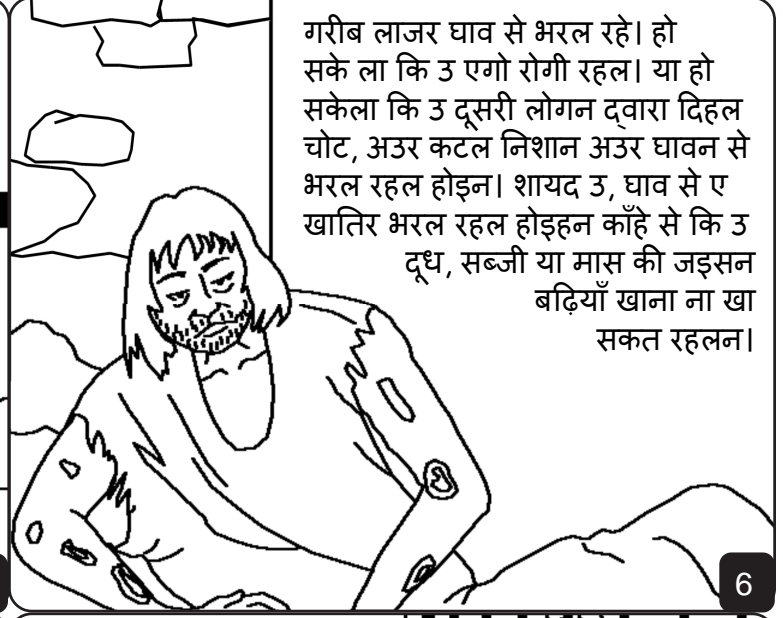 गरीब लाजर घाव से भरल रहे। हो
सके ला कि उ एगो रोगी रहल। या हो
सकेला कि उ दूसरी लोगन द्वारा दिहल
चोट, अउर कटल निशान अउर घावन से
भरल रहल होइन। शायद उ, घाव से ए
खातिर भरल रहल होइहन काँहे से कि उ
दूध, सब्जी या मास की जइसन
बढ़ियाँ खाना ना खा
सकत रहलन।
6